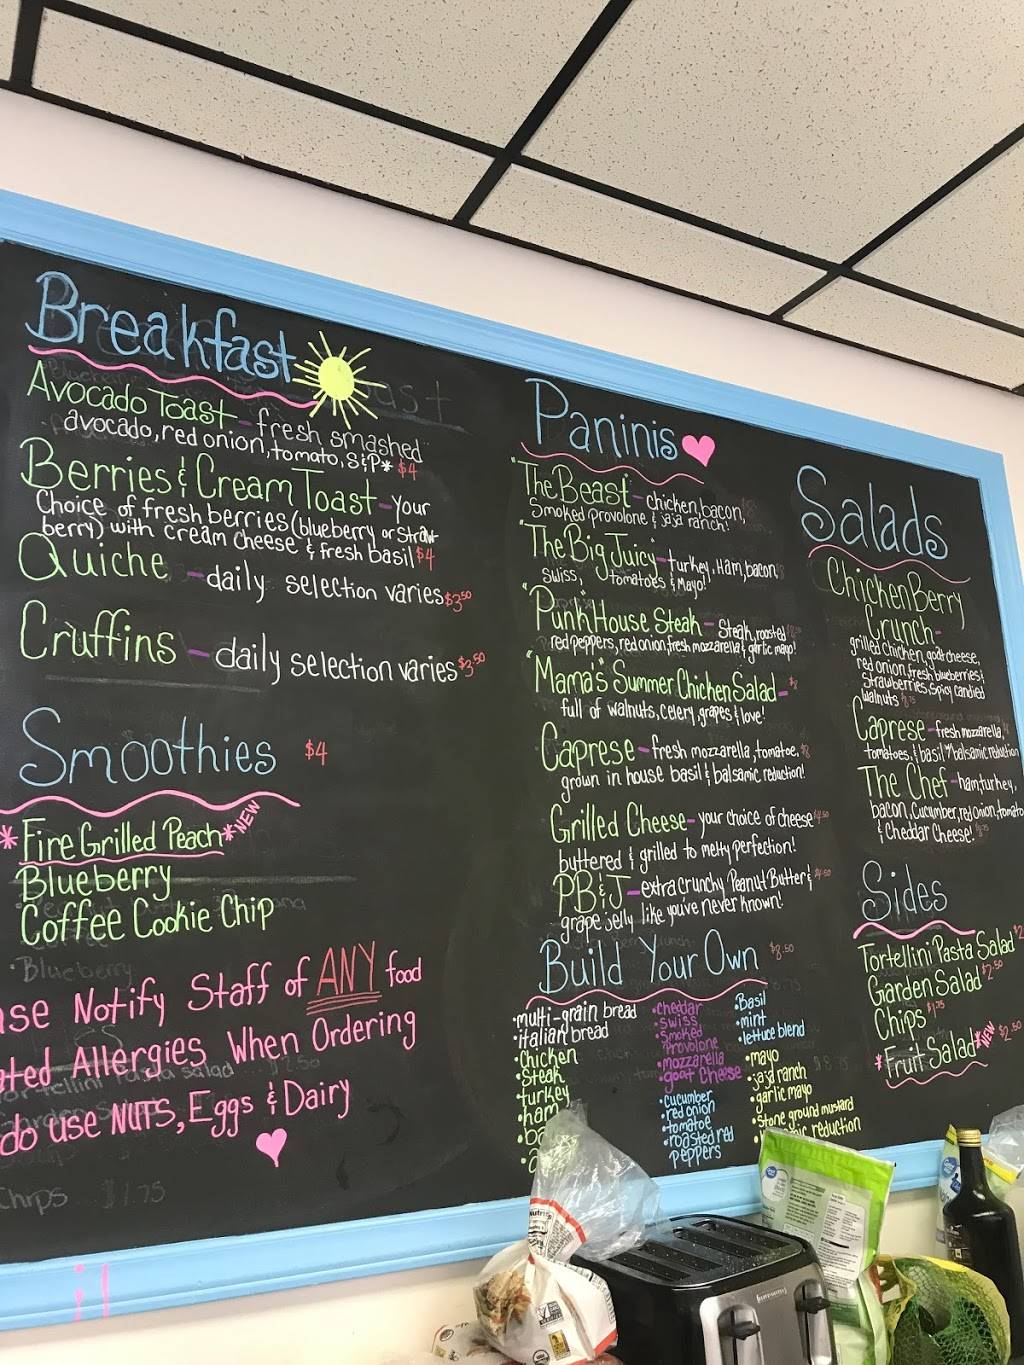 Breakfast
Avocado Toast - fresh smashed
avocado, red onion, tomato, S&P* $4
Berries & Cream Toast - your
choice of fresh berries (blueberry or straw-
berry) with cream cheese & fresh basil $4
Quiche - daily selection varies $3.50
Cruffins - daily selection varies $3.50
Smoothies $4
*Fire Grilled Peach* NEW
Blueberry
Coffee Cookie Chip
Notify Staff of ANY food
Allergies When Ordering
do use NUTS, Eggs & Dairy
Chips $1.75
Paninis
"The Beast" - chicken, bacon,
smoked provolone & jaja ranch!
"The Big Juicy" - turkey, Ham, bacon,
swiss, tomatoes & Mayo!
"Punk" House Steak - Steak, roasted
red peppers, red onion, fresh mozzarella & garlic mayo!
"Mama's" Summer Chicken Salad - $8
full of walnuts, celery, grapes & love!
Caprese - fresh mozzarella, tomatoe, $8
grown in house basil & balsamic reduction!
Grilled Cheese - your choice of cheese
buttered & grilled to melty perfection!
PB&J - extra crunchy Peanut Butter &
grape jelly like you've never known!
Build Your Own $8.50
•multi-grain bread
•italian bread
•Chicken
•Steak
•turkey
•ham
•cheddar
•swiss
•smoked
provolone
•mozzarella
•goat Cheese
•cucumber
•red onion
•tomatoe
•roasted red
peppers
•Basil
•mint
•lettuce blend
•mayo
•jaja ranch
•garlic mayo
•stone ground mustard
reduction
Salads
Chicken Berry
Crunch -
grilled chicken, goat cheese,
red onion, fresh blueberries &
strawberries, spicy candied
walnuts
Caprese - fresh mozzarella,
tomatoes, & basil w/ balsamic reduction
The Chef - ham, turkey,
bacon, Cucumber, red onion, tomato
& Cheddar Cheese!
Sides
Tortellini Pasta Salad
Garden Salad $2.50
Chips $1.75
*Fruit Salad* NEW $2.50